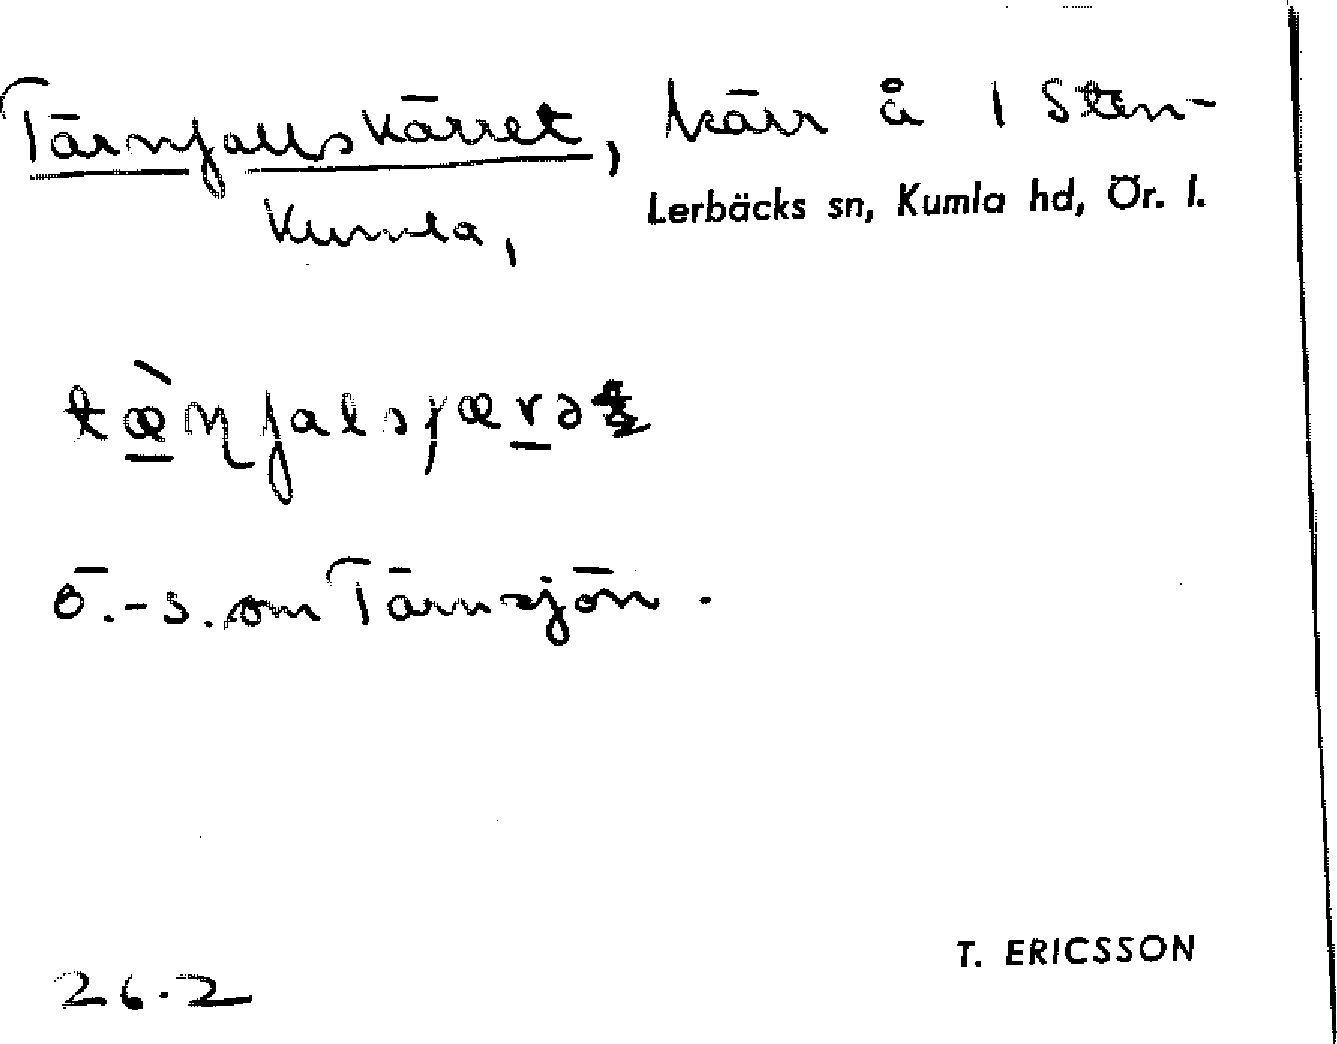 Tärnfallskärret, kärr å 1 Sten-
Kumla, Lerbäcks sn, Kumla hd, Ör. l.
ö.-s. om Tärnsjön.
T. ERICSSON
26.2